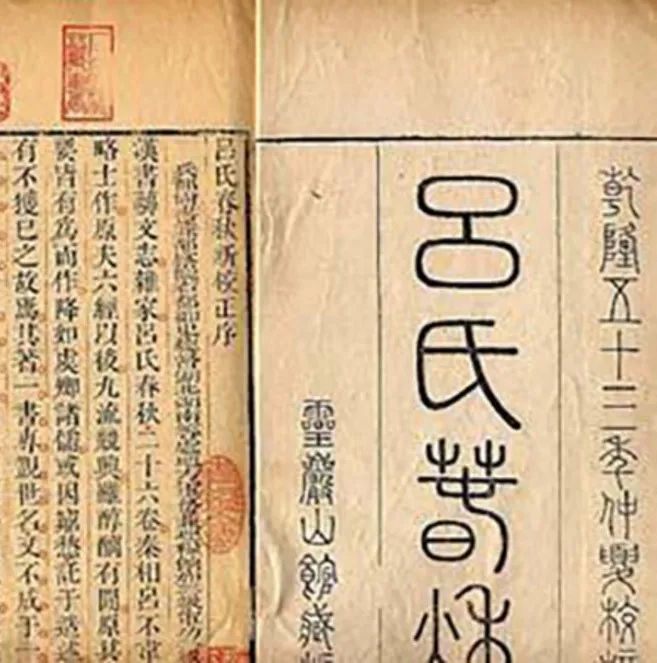 乾隆五十三年仲夏校
呂氏春秋
靈巖山館藏
呂氏春秋新校正序
漢書藝文志雜家呂氏春秋二十六卷秦相呂不韋
略士作原夫六經以後九流競興雖醇醨有間原其
要皆有爲而作降如虞卿諸儒或因窮愁託于造述
有不獲已之故焉其著一書專覬世名又不成于一